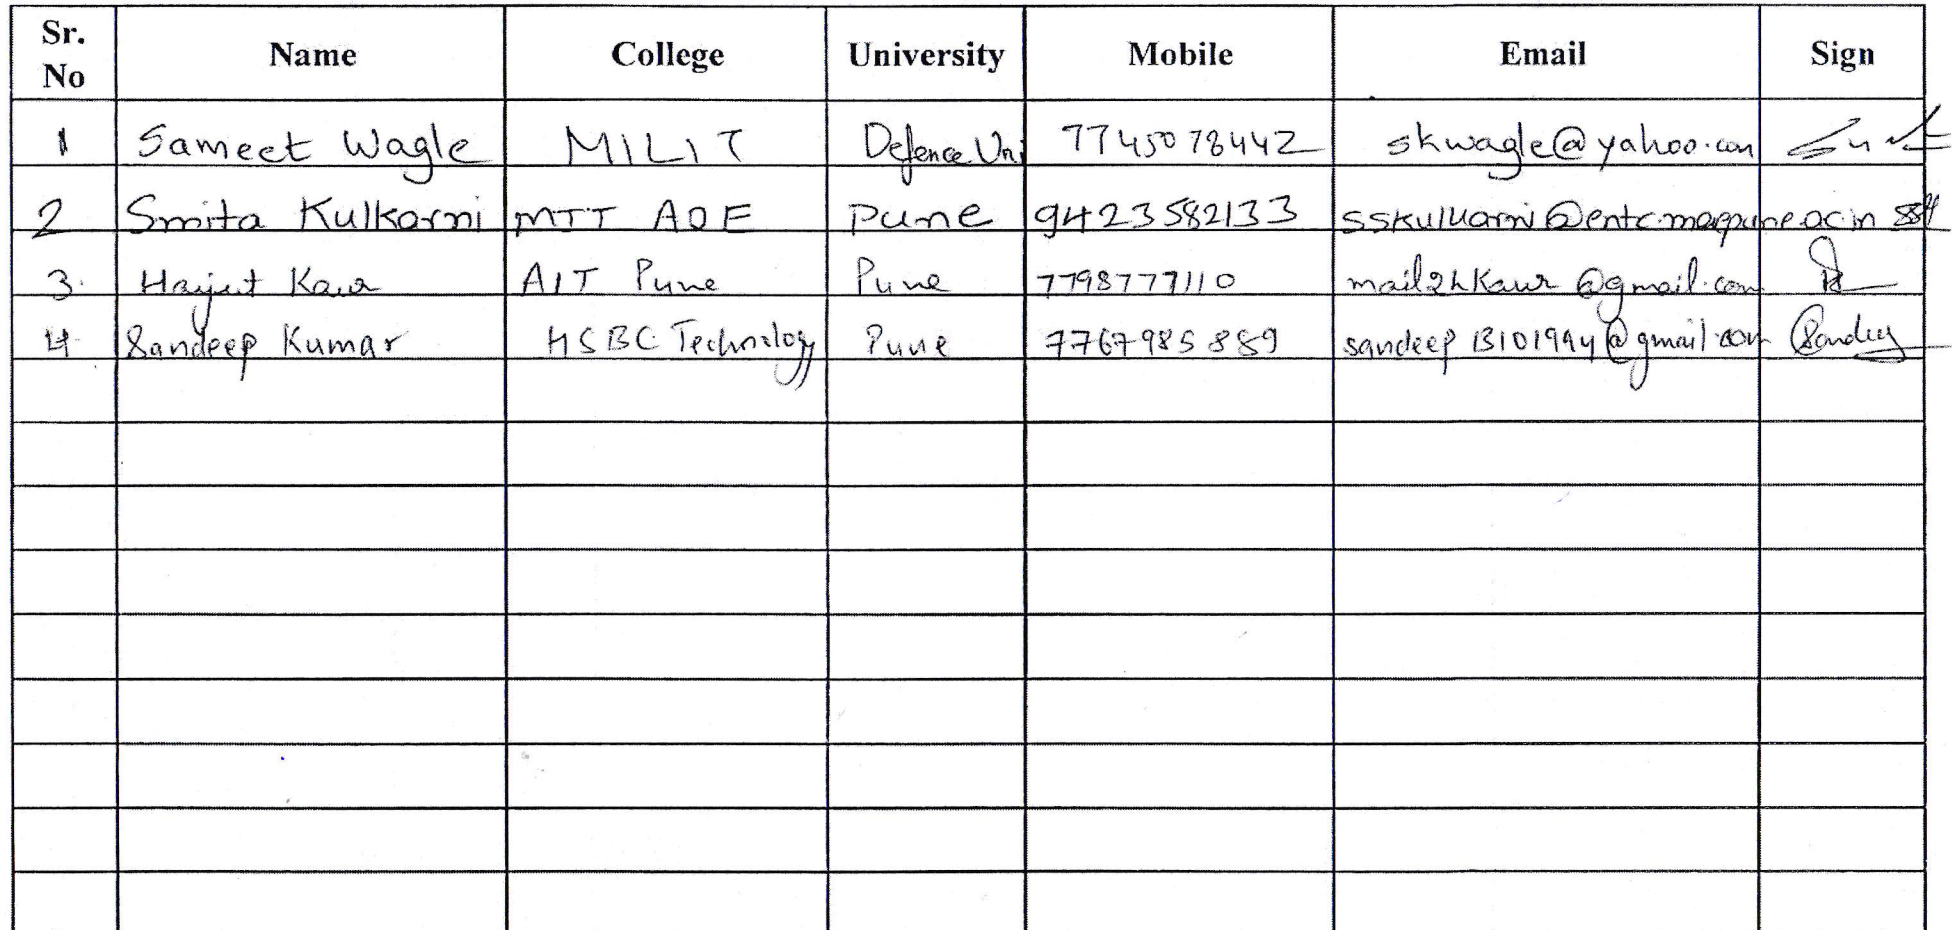 Sr. No Name College University Mobile Email Sign
1 Sameet Wagle MILIT Defence Uni 7745078442 skwagle@yahoo.com
2 Smita Kulkarni MIT AOE Pune 9423582133
3. Harjeet Kaur AIT Pune Pune 7798777110 mail2hkaur@gmail.com
4. Sandeep Kumar HSBC Technology Pune 7767985889 sandeep13101994@gmail.com Sandeep